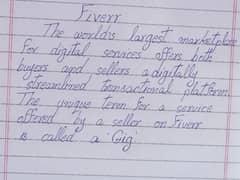 Fiverr
The world's largest marketplace
For digital services offers both
buyers and sellers a digitally
streamlined transactional platform.
The unique term for a service
offered by a seller on Fiverr
is called a "Gig"